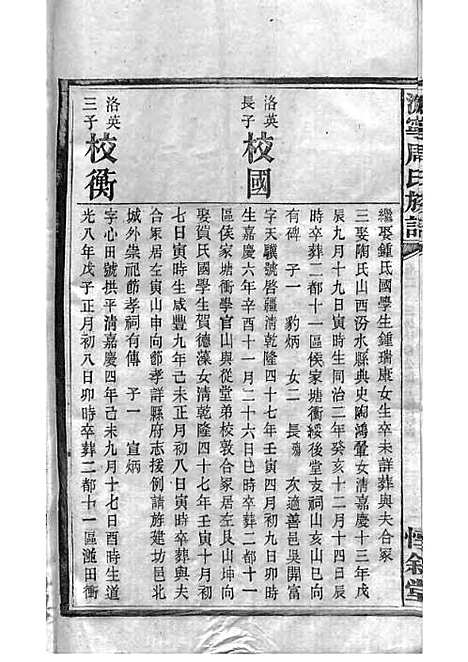 周氏族譜
惇敘堂
繼娶鍾氏國學生鍾瑞康女生卒未詳葬與夫合冢
三娶陶氏山西汾水縣典史陶鴻聲女清嘉慶十三年戊
辰九月十九日寅時生同治二年癸亥十二月十四日辰
時卒葬二都十一區侯家塘衝綏後堂支祠山亥山巳向
有碑 子一 豹炳 女二 長殤 次適善邑吳開富
洛英長子 校國
字天驥號啓疆清乾隆四十七年壬寅四月初九日卯時
生嘉慶六年辛酉十一月二十六日巳時卒葬二都十一
區侯家塘衝學官山與從堂弟校敦合冢居左艮山坤向
娶賀氏國學生賀德藻女清乾隆四十七年壬寅十月初
七日寅時生咸豐九年己未正月初八日寅時卒葬與夫
合冢居左寅山申向節孝詳縣府志援例請族建坊邑北
城外崇祀節孝祠有傳 子一 宣炳
洛英三子 校衡
字心田號拱平清嘉慶四年己未九月十七日酉時生道
光八年戊子正月初八日卯時卒葬二都十一區田衝